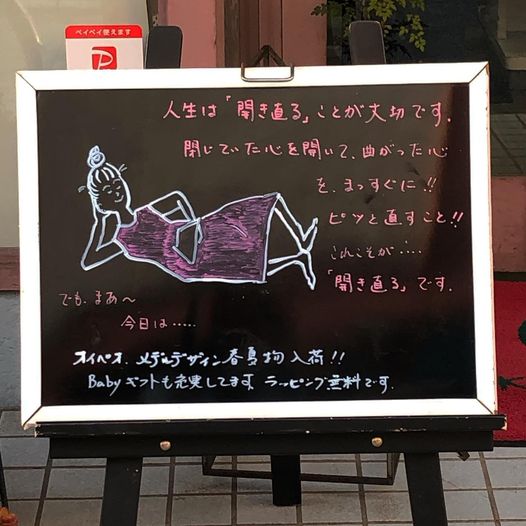 ペイペイ使えます
P
人生は「開き直る」ことが大切です.
閉じていた心を開いて、曲がった心
を、まっすぐに!!
ピッと直すこと!!
これこそが‥‥
「開き直る」です.
でも、まあ〜
今日は‥‥‥
春夏物入荷!!
Babyギフトも充実してます ラッピング無料です.